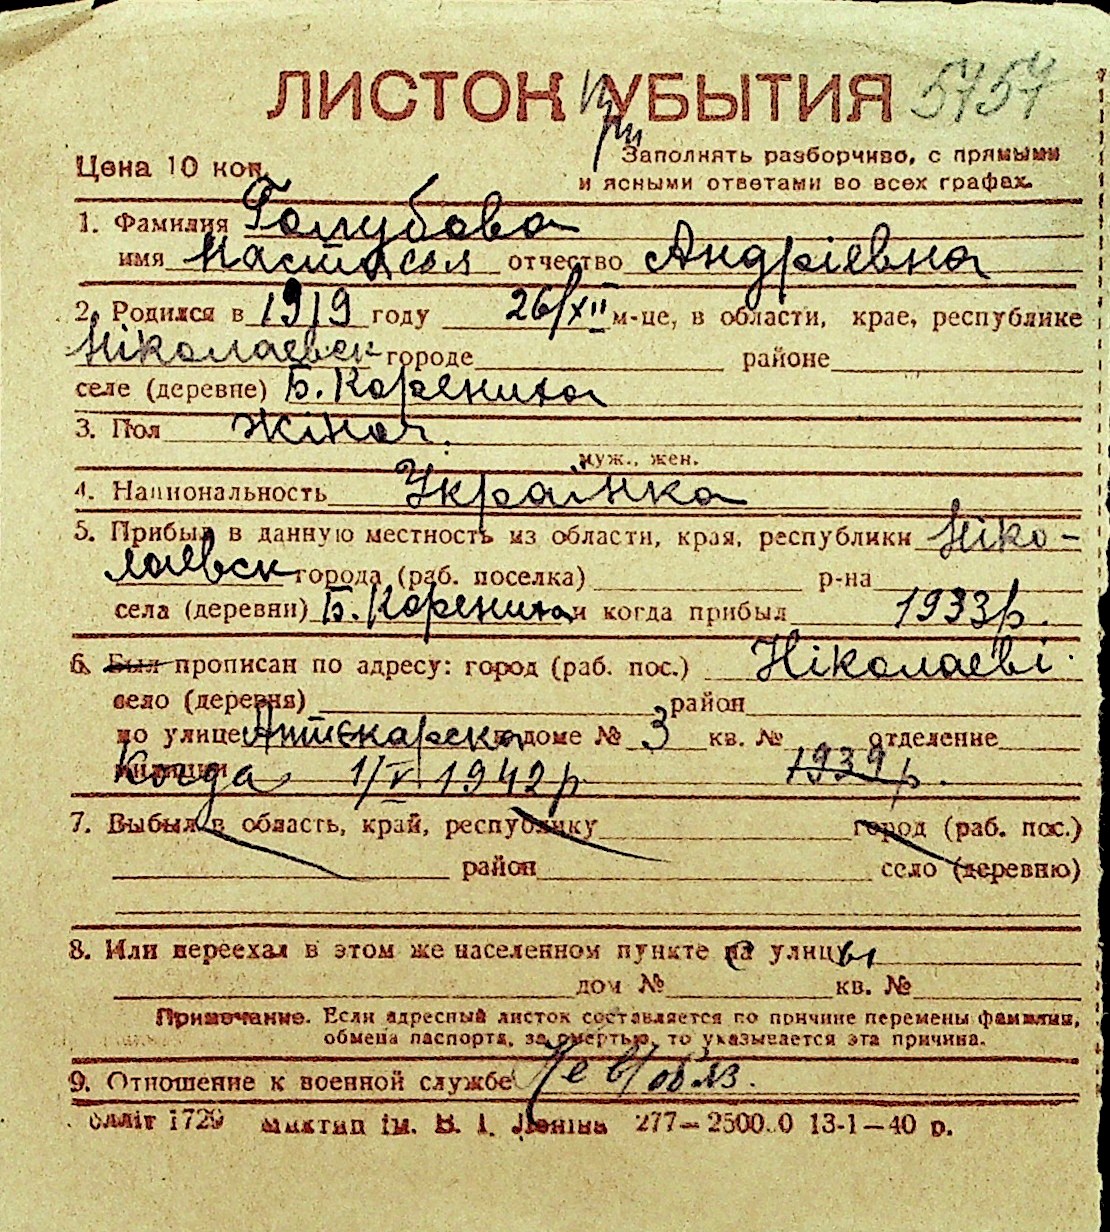 ЛИСТОК при УБЫТИЯ 5757
Цена 10 коп.
Заполнять разборчиво, с прямыми
и ясными ответами во всех графах.
1. Фамилия Голубова
имя Настасья отчество Андріевна
2. Родился в 1919 году 26/XII м-це, в области, крае, республике
Ніколаевск городе районе
селе (деревне) Б. Корениха
3. Пол жіноч.
муж., жен.
4. Национальность Українка
5. Прибыл в данную местность из области, края, республики Ніко-
лаевск города (раб. поселка) р-на
села (деревни) Б. Корениха и когда прибыл 1933р.
6. Был прописан по адресу: город (раб. пос.) Ніколаеві
село (деревня) район
по улице доме № 3 кв. № отделение
милиции Когда 1/V 1942р 1939р.
7. Выбыл в область, край, республику город (раб. пос.)
район село (деревню)
8. Или переехал в этом же населенном пункте с улицы
дом № кв. №
Примечание. Если адресный листок составляется по причине перемены фамилии,
обмена паспорта, за смертью, то указывается эта причина.
9. Отношение к военной службе Не в/обяз.
Оллiт 1729 ім. В. І. Леніна 277—2500.0 13-1—40 р.